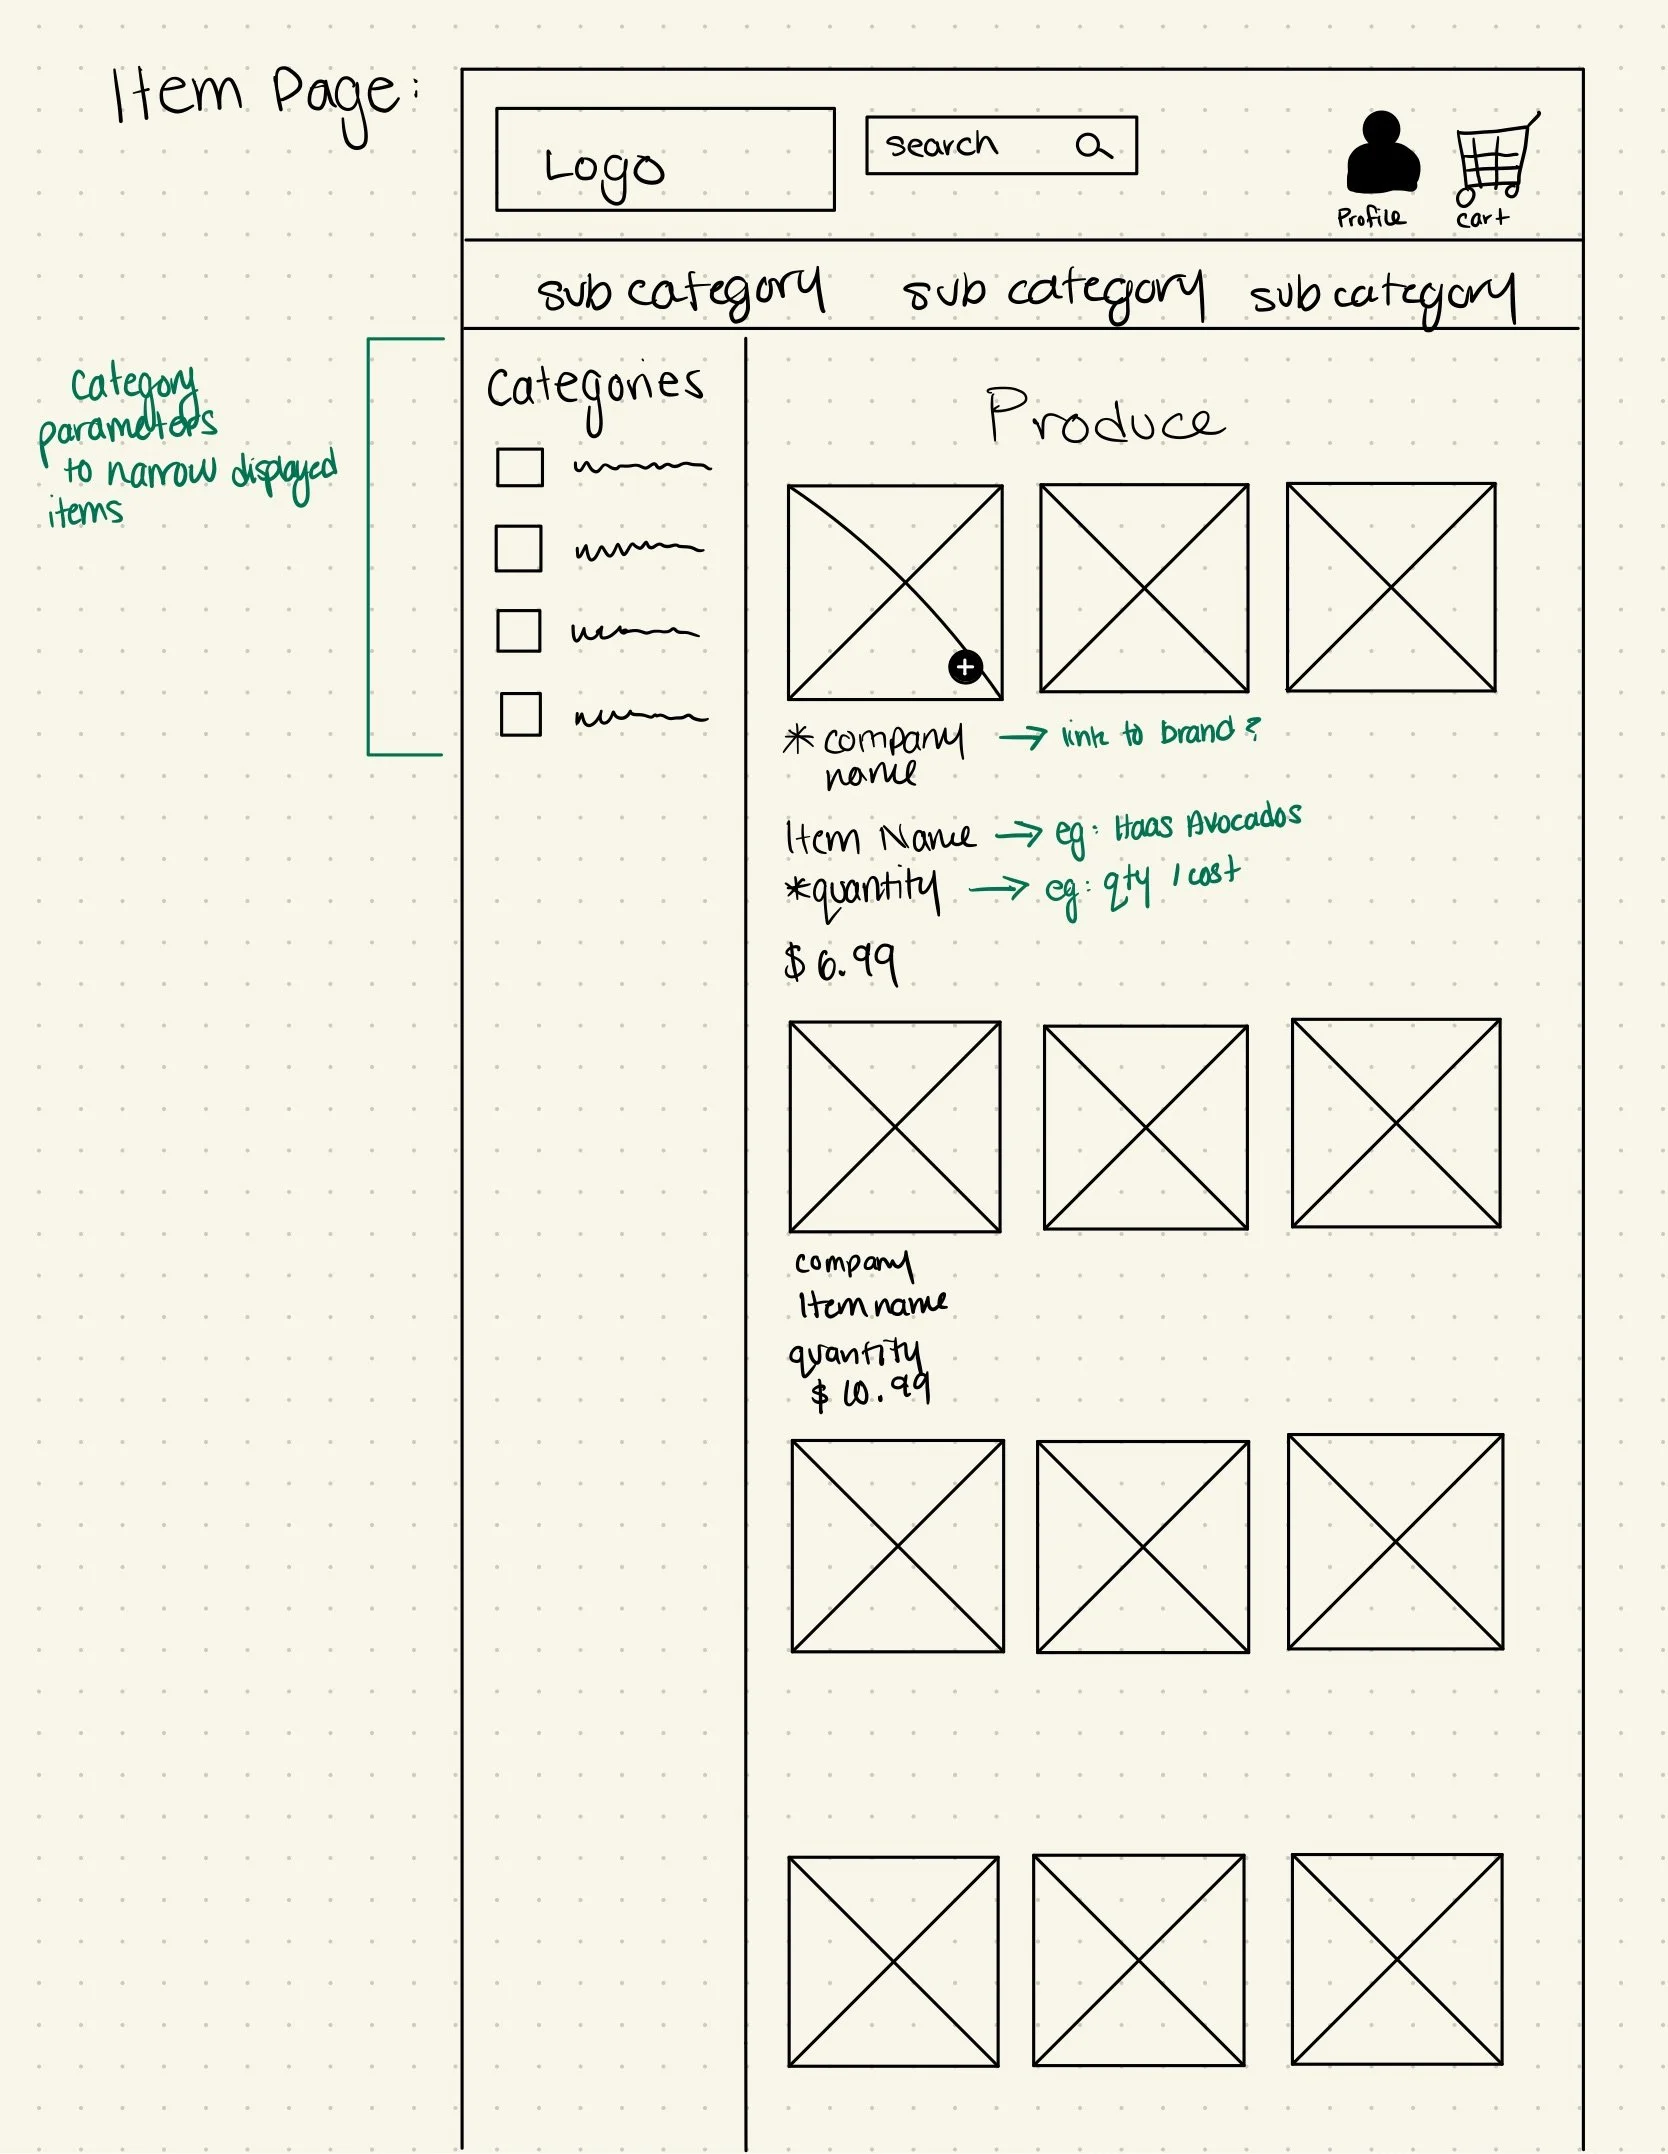 Item Page:
Logo
search
Profile
cart
sub category
sub category
sub category
Category
parameters
to narrow displayed
items
Categories
Produce
*company
name
→ link to brand?
Item Name → eg: Haas Avocados
*quantity → eg: qty / cost
$6.99
company
Item name
quantity
$10.99